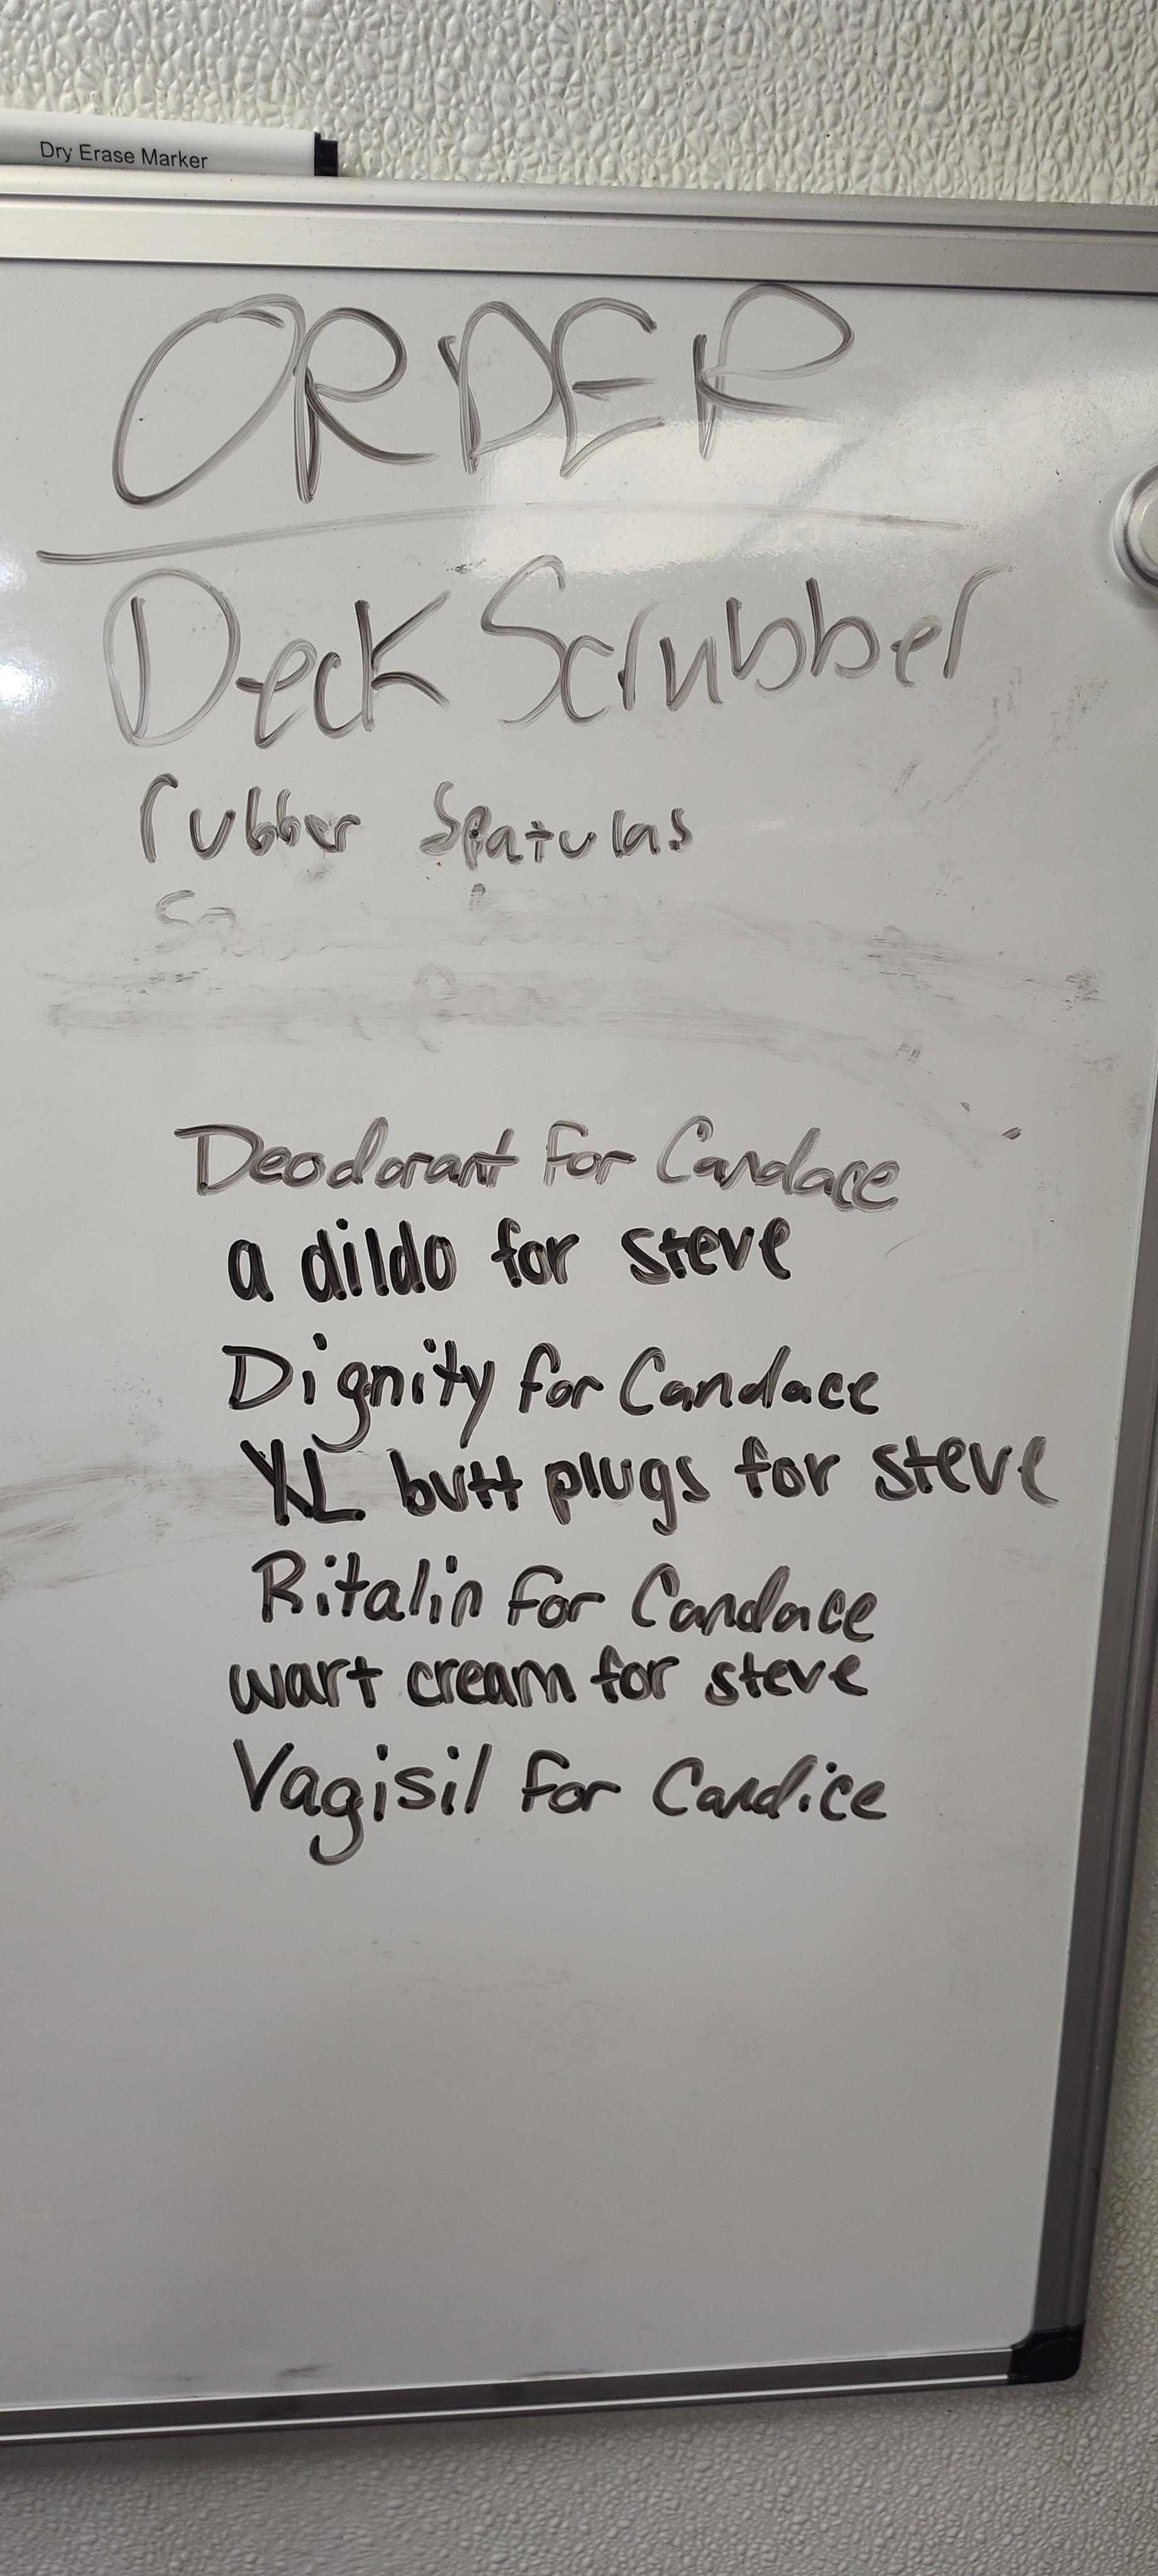 Dry Erase Marker
ORDER
Deck Scrubber
rubber Spatulas
Deodorant for Candace
a dildo for steve
Dignity for Candace
XL butt plugs for steve
Ritalin for Candace
wart cream for steve
Vagisil for Candice